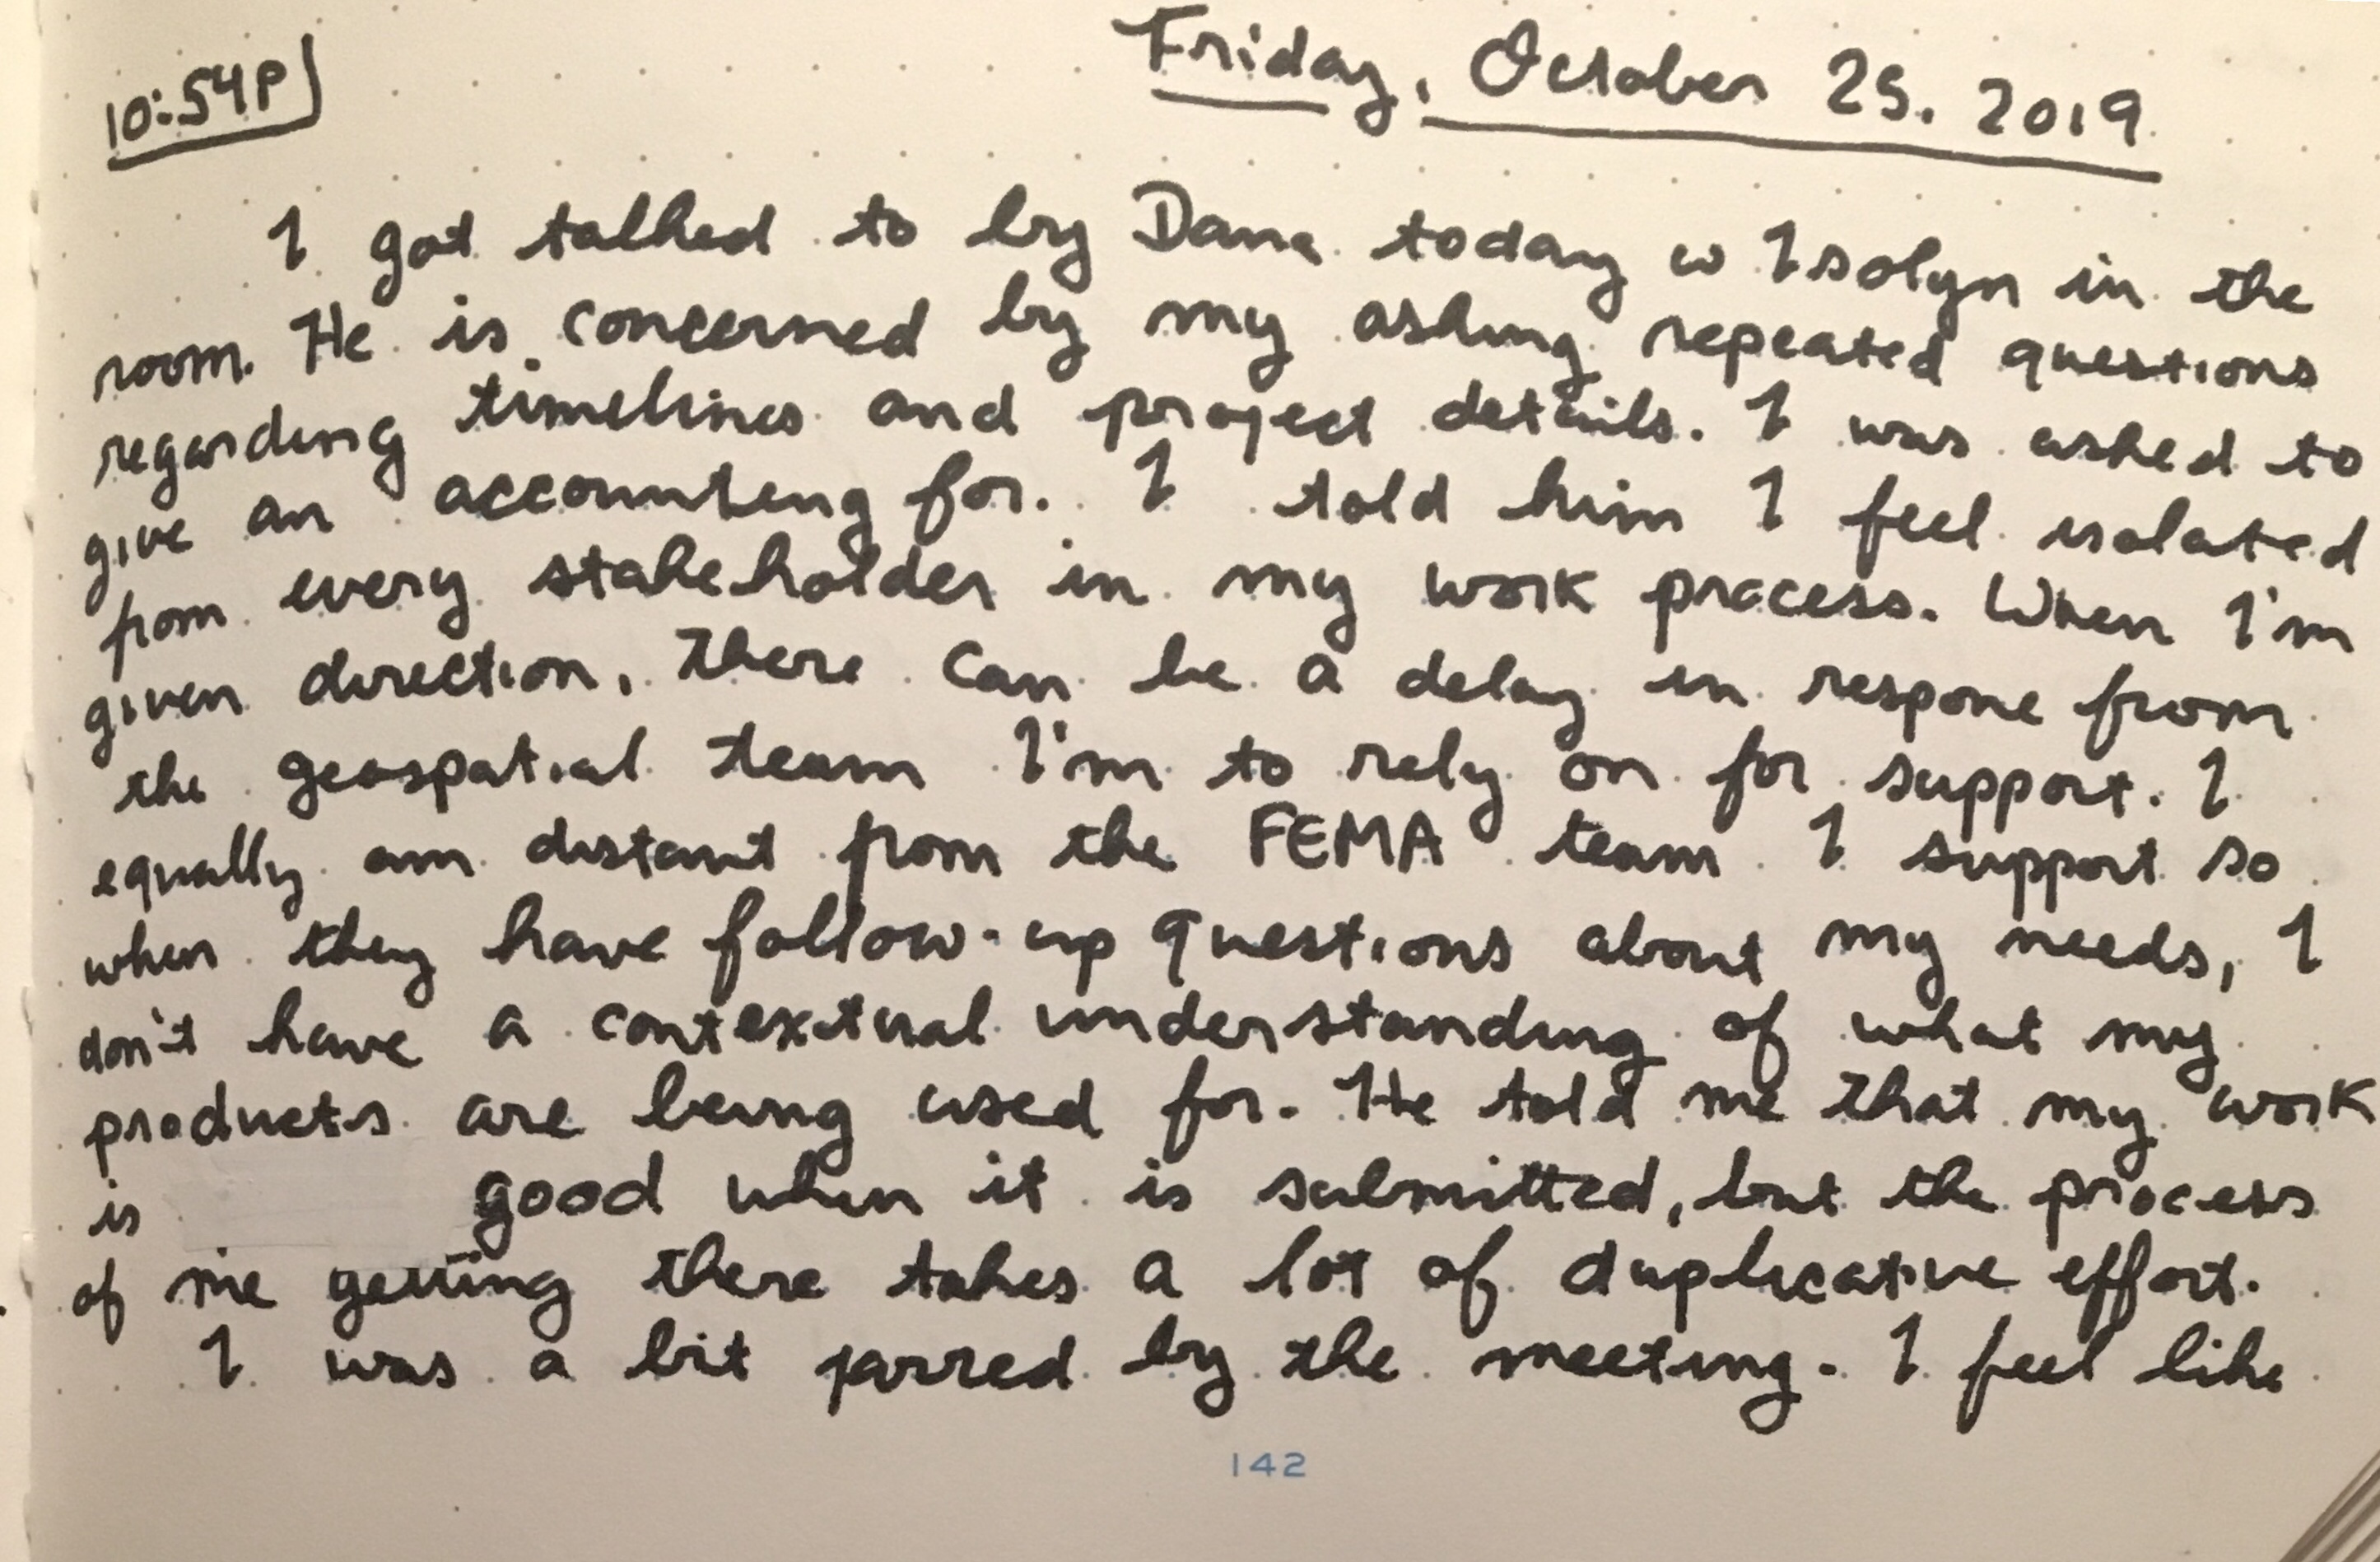 10:54P
Friday, October 25. 2019
I got talked to by Dane today w Isolyn in the
room. He is concerned by my asking repeated questions
regarding timelines and project details. I was asked to
give an accounting for. I told him I feel isolated
from every stakeholder in my work process. When I'm
given direction, there can be a delay in respone from
the geospatial team I'm to rely on for support. I
equally am distant from the FEMA team I support so
when they have follow-up questions about my needs, I
don't have a contextual understanding of what my
products are being used for. He told me that my work
is good when it is submitted, but the process
of me getting there takes a lot of duplicative effort.
I was a bit jarred by the meeting. I feel like
142